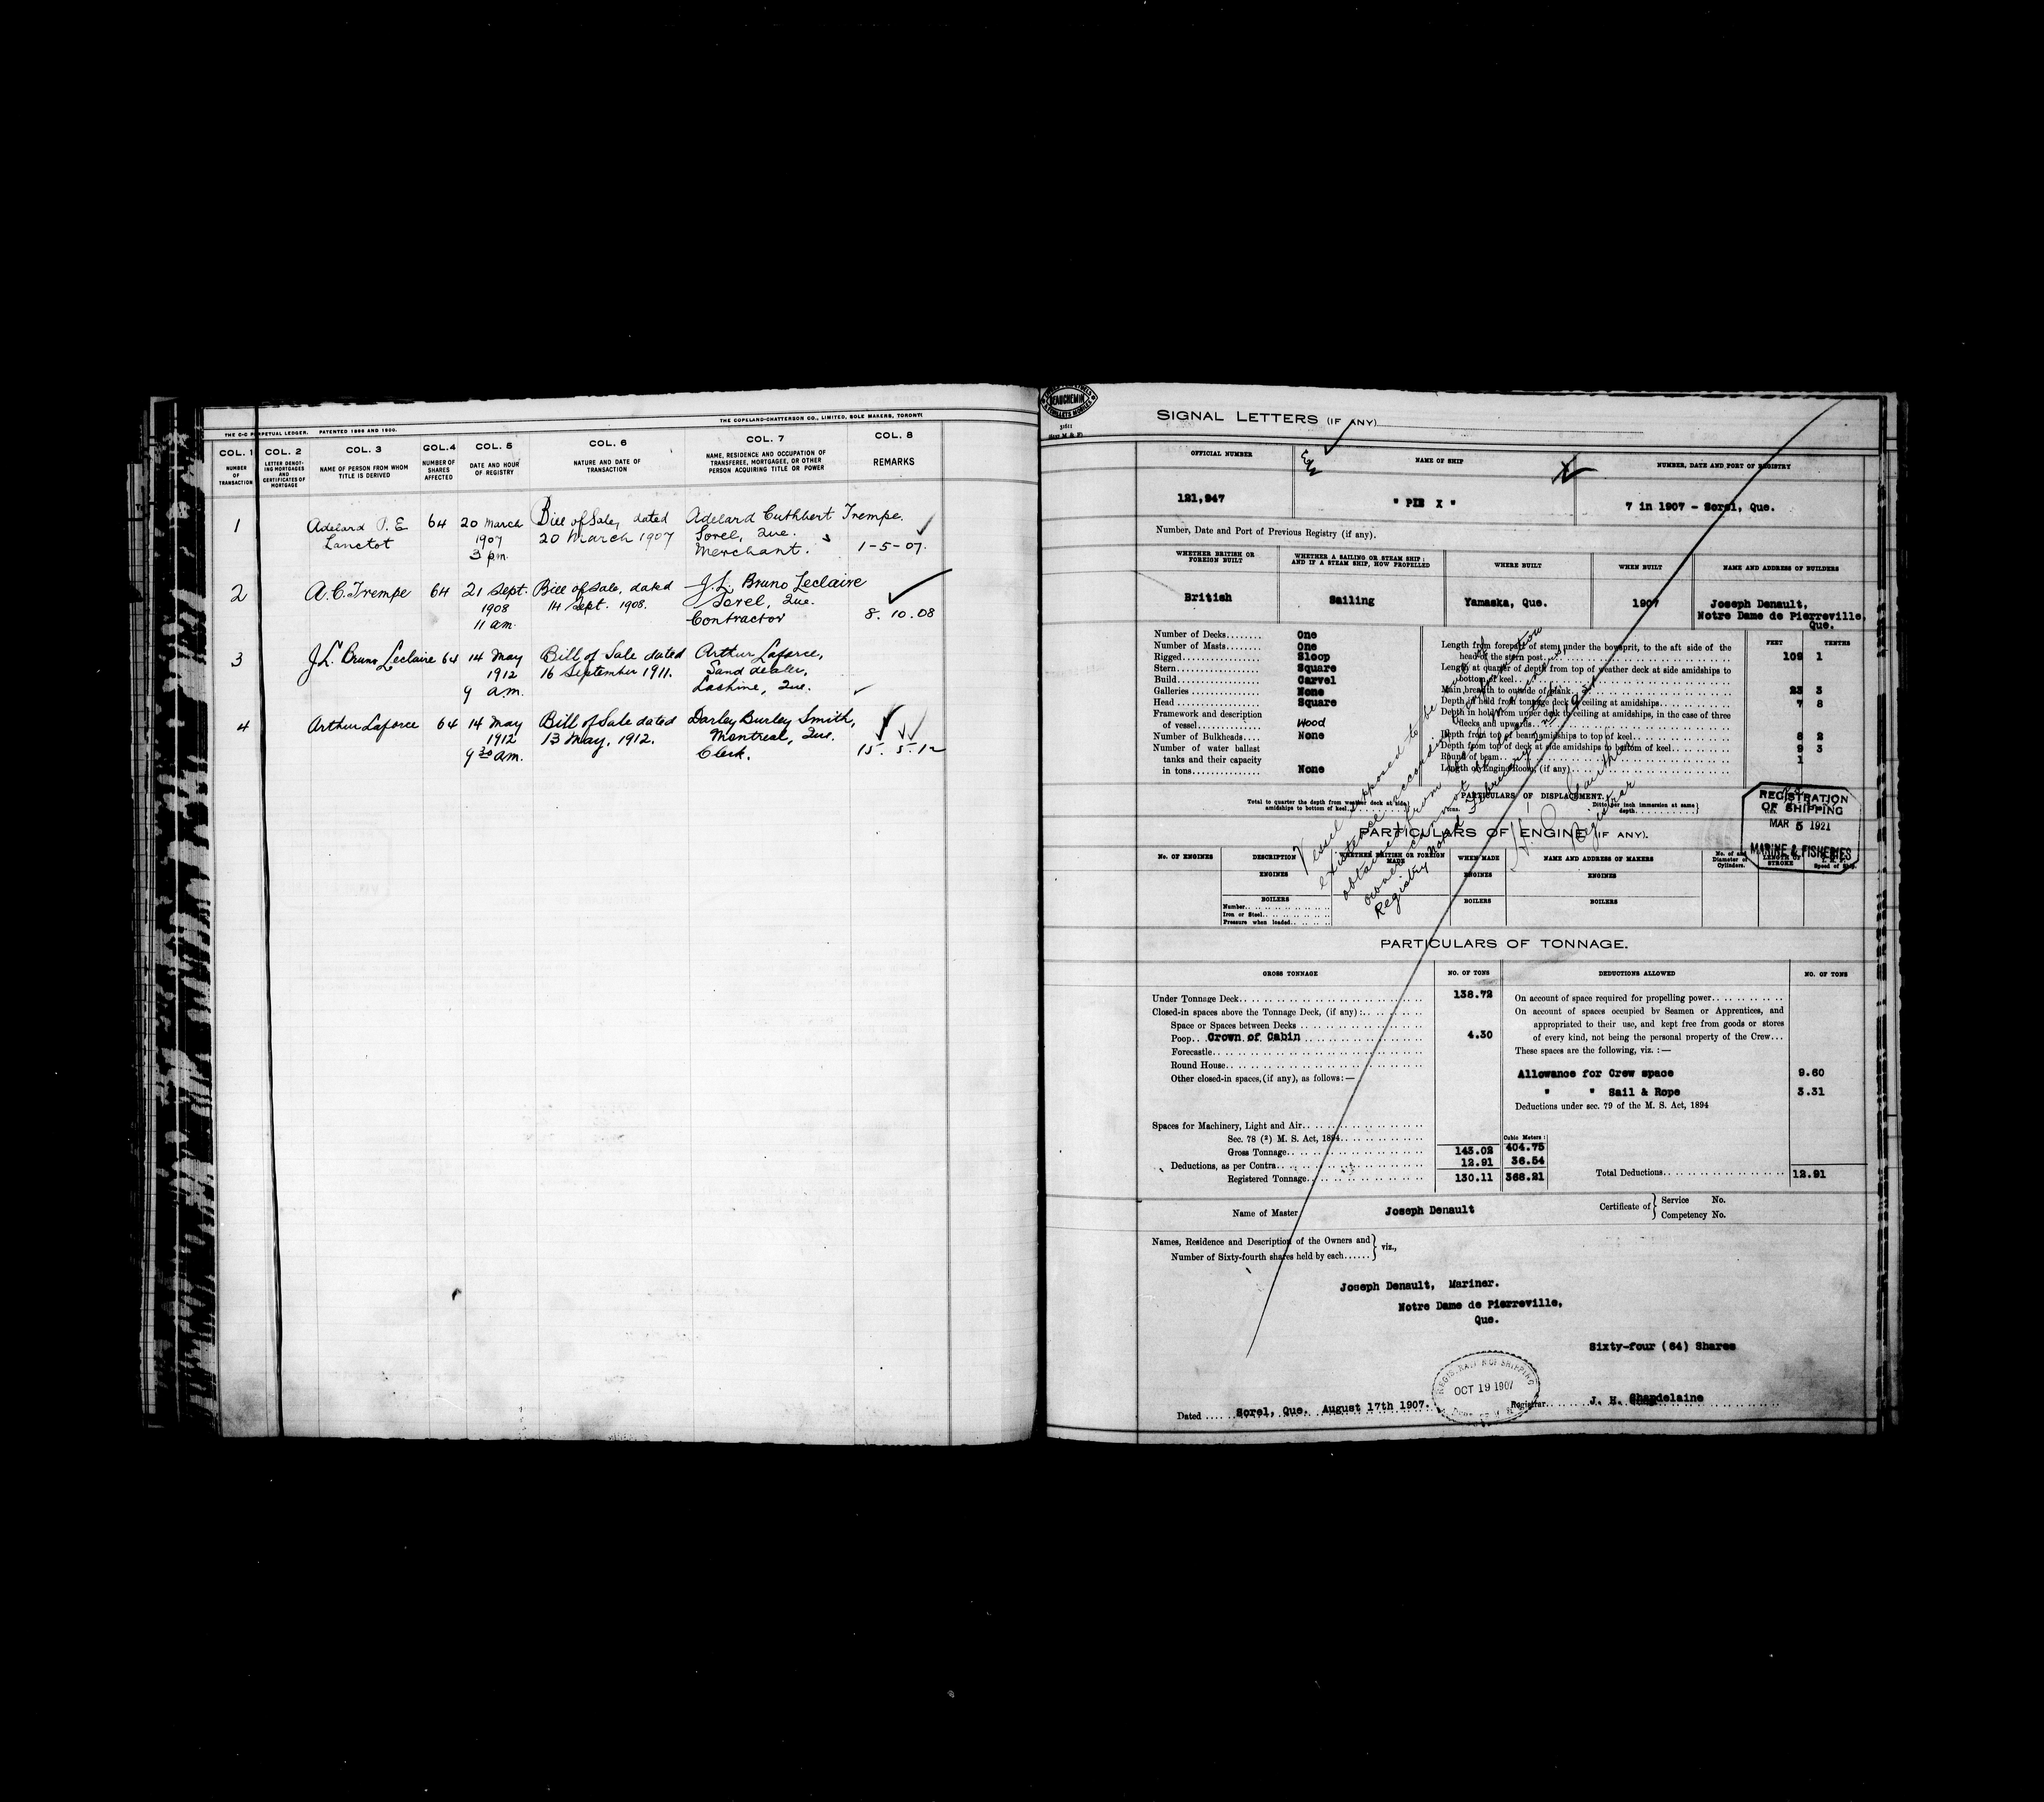 THE C-C PERPETUAL LEDGER. PATENTED 1898 AND 1900.
THE COPELAND-CHATTERSON CO., LIMITED, SOLE MAKERS, TORONTO
COL. 1 COL. 2 COL. 3 COL. 4 COL. 5 COL. 6 COL. 7 COL. 8
NUMBER OF TRANSACTION
LETTER DENOTING MORTGAGES AND CERTIFICATES OF MORTGAGE
NAME OF PERSON FROM WHOM TITLE IS DERIVED
NUMBER OF SHARES AFFECTED
DATE AND HOUR OF REGISTRY
NATURE AND DATE OF TRANSACTION
NAME, RESIDENCE AND OCCUPATION OF TRANSFEREE, MORTGAGEE, OR OTHER PERSON ACQUIRING TITLE OR POWER
REMARKS
1 Adelard P. E 64 20 March Bill of Sale, dated Adelard Cuthbert Trempe.
Lanctot 1907 20 March 1907 Sorel, Que.
3 pm. Merchant. 1-5-07.
2 A. C. Trempe 64 21 Sept. Bill of Sale, dated J. L. Bruno Leclaire
1908 14 Sept. 1908. Sorel, Que.
11 am. Contractor 8.10.08
3 J. L. Bruno Leclaire 64 14 May Bill of Sale dated Arthur Laforce,
1912 16 September 1911. Sand dealer,
9 am. Lachine, Que.
4 Arthur Laforce 64 14 May Bill of Sale dated Darley Burley Smith,
1912 13 May, 1912. Montreal, Que.
9 30 am. Clerk. 15. 5-12
BEAUCHEMIN
SIGNAL LETTERS (IF ANY)
OFFICIAL NUMBER NAME OF SHIP NUMBER, DATE AND PORT OF REGISTRY
121,947 " PIE X " 7 in 1907 - Sorel, Que.
Number, Date and Port of Previous Registry (if any).
WHETHER BRITISH OR FOREIGN BUILT
WHETHER A SAILING OR STEAM SHIP: AND IF A STEAM SHIP, HOW PROPELLED
WHERE BUILT
WHEN BUILT
NAME AND ADDRESS OF BUILDERS
British Sailing Yamaska, Que. 1907 Joseph Denault,
Notre Dame de Pierreville,
Que.
Number of Decks........ One
Number of Masts........ One
Rigged.......... Sloop
Stern.......... Square
Build.......... Carvel
Galleries.......... None
Head.......... Square
Framework and description
of vessel.......... Wood
Number of Bulkheads.... None
Number of water ballast
tanks and their capacity
in tons.......... None
FEET TENTHS
Length from forepart of stem, under the bowsprit, to the aft side of the
head of the stern post 109 1
Length at quarter of depth from top of weather deck at side amidships to
bottom of keel
Main breadth to outside of plank 23 3
Depth in hold from tonnage deck to ceiling at amidships 7 8
Depth in hold from upper deck to ceiling at amidships, in the case of three
decks and upwards
Depth from top of beam amidships to top of keel 8 2
Depth from top of deck at side amidships to bottom of keel 9 3
Round of beam 1
Length of Engine Room, (if any)
Vessel supposed to be out of
existence according to information
obtained from
owner cannot be located.
Registry closed February 2nd
Registrar
PARTICULARS OF DISPLACEMENT.
Total to quarter the depth from weather deck at side amidships to bottom of keel Tons.
Ditto per inch immersion at same depth
REGISTRATION
OF SHIPPING
MAR 5 1921
MARINE & FISHERIES
PARTICULARS OF ENGINE (IF ANY).
No. OF ENGINES DESCRIPTION WHETHER BRITISH OR FOREIGN MADE WHEN MADE NAME AND ADDRESS OF MAKERS No. of and Diameter of Cylinders. LENGTH OF STROKE Speed of Ship.
ENGINES ENGINES ENGINES
BOILERS BOILERS BOILERS
Number
Iron or Steel
Pressure when loaded
PARTICULARS OF TONNAGE.
GROSS TONNAGE NO. OF TONS DEDUCTIONS ALLOWED NO. OF TONS
Under Tonnage Deck 138.72
Closed-in spaces above the Tonnage Deck, (if any):
Space or Spaces between Decks
Poop.. Crown of Cabin 4.30
Forecastle
Round House
Other closed-in spaces, (if any), as follows:—
Spaces for Machinery, Light and Air
Sec. 78 (2) M. S. Act, 1894 Cubic Meters:
Gross Tonnage 143.02 404.75
Deductions, as per Contra 12.91 36.54
Registered Tonnage 130.11 368.21
On account of space required for propelling power
On account of spaces occupied by Seamen or Apprentices, and
appropriated to their use, and kept free from goods or stores
of every kind, not being the personal property of the Crew...
These spaces are the following, viz.:—
Allowance for Crew space 9.60
" " Sail & Rope 3.31
Deductions under sec. 79 of the M. S. Act, 1894
Total Deductions 12.91
Name of Master Joseph Denault Certificate of { Service No.
Competency No.
Names, Residence and Description of the Owners and
Number of Sixty-fourth shares held by each...... } viz.,
Joseph Denault, Mariner.
Notre Dame de Pierreville,
Que.
Sixty-four (64) Shares
OCT 19 1907
Dated .... Sorel, Que. August 17th 1907. Registrar J. H. Chapdelaine